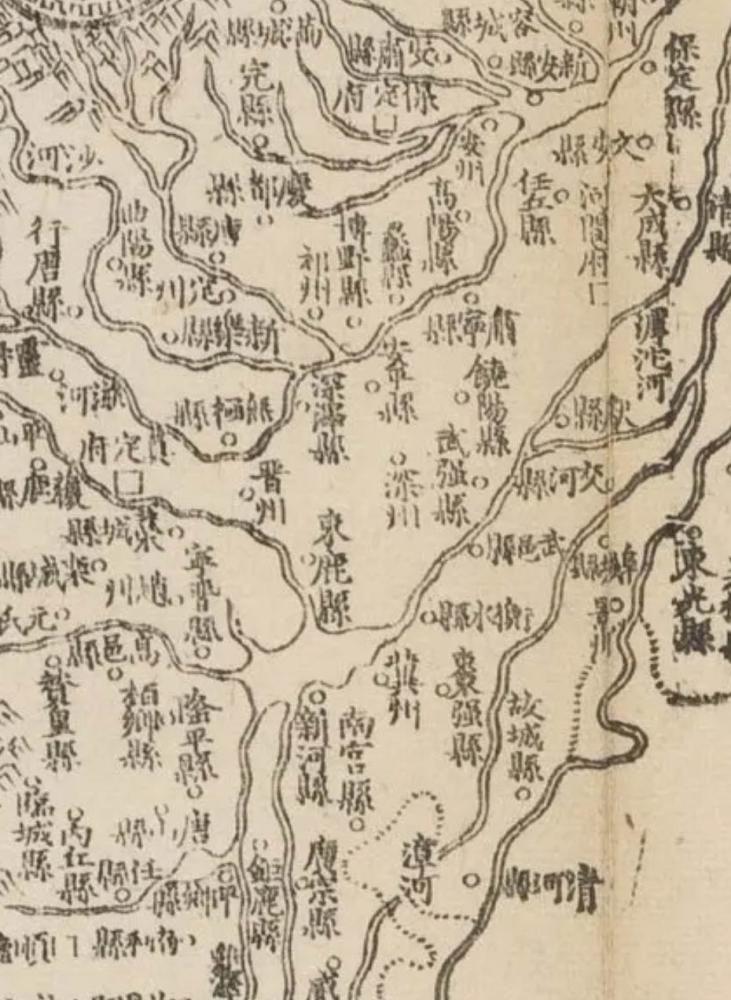 容城縣
滿城縣
安肅縣
新安縣
保定府
完縣
保定縣
安州
文安縣
沙河
慶都縣
高陽縣
任丘縣
河間府
大成縣
靖縣
行唐縣
曲陽縣
唐縣
定州
祁州
博野縣
蠡縣
新樂縣
肅寧縣
滹沱河
滋河
無極縣
深澤縣
饒陽縣
獻縣
真定府
晉州
深州
武强縣
交河縣
藁城縣
欒城縣
趙州
寧晉縣
束鹿縣
武邑縣
阜城縣
景州
東光縣
元氏
衡水縣
高邑縣
贊皇縣
柏鄉縣
隆平縣
新河縣
南宮縣
冀州
棗强縣
故城縣
臨城縣
內丘縣
唐
縣
任縣
平鄉縣
鉅鹿縣
廣宗縣
漳河
清河縣
順
威